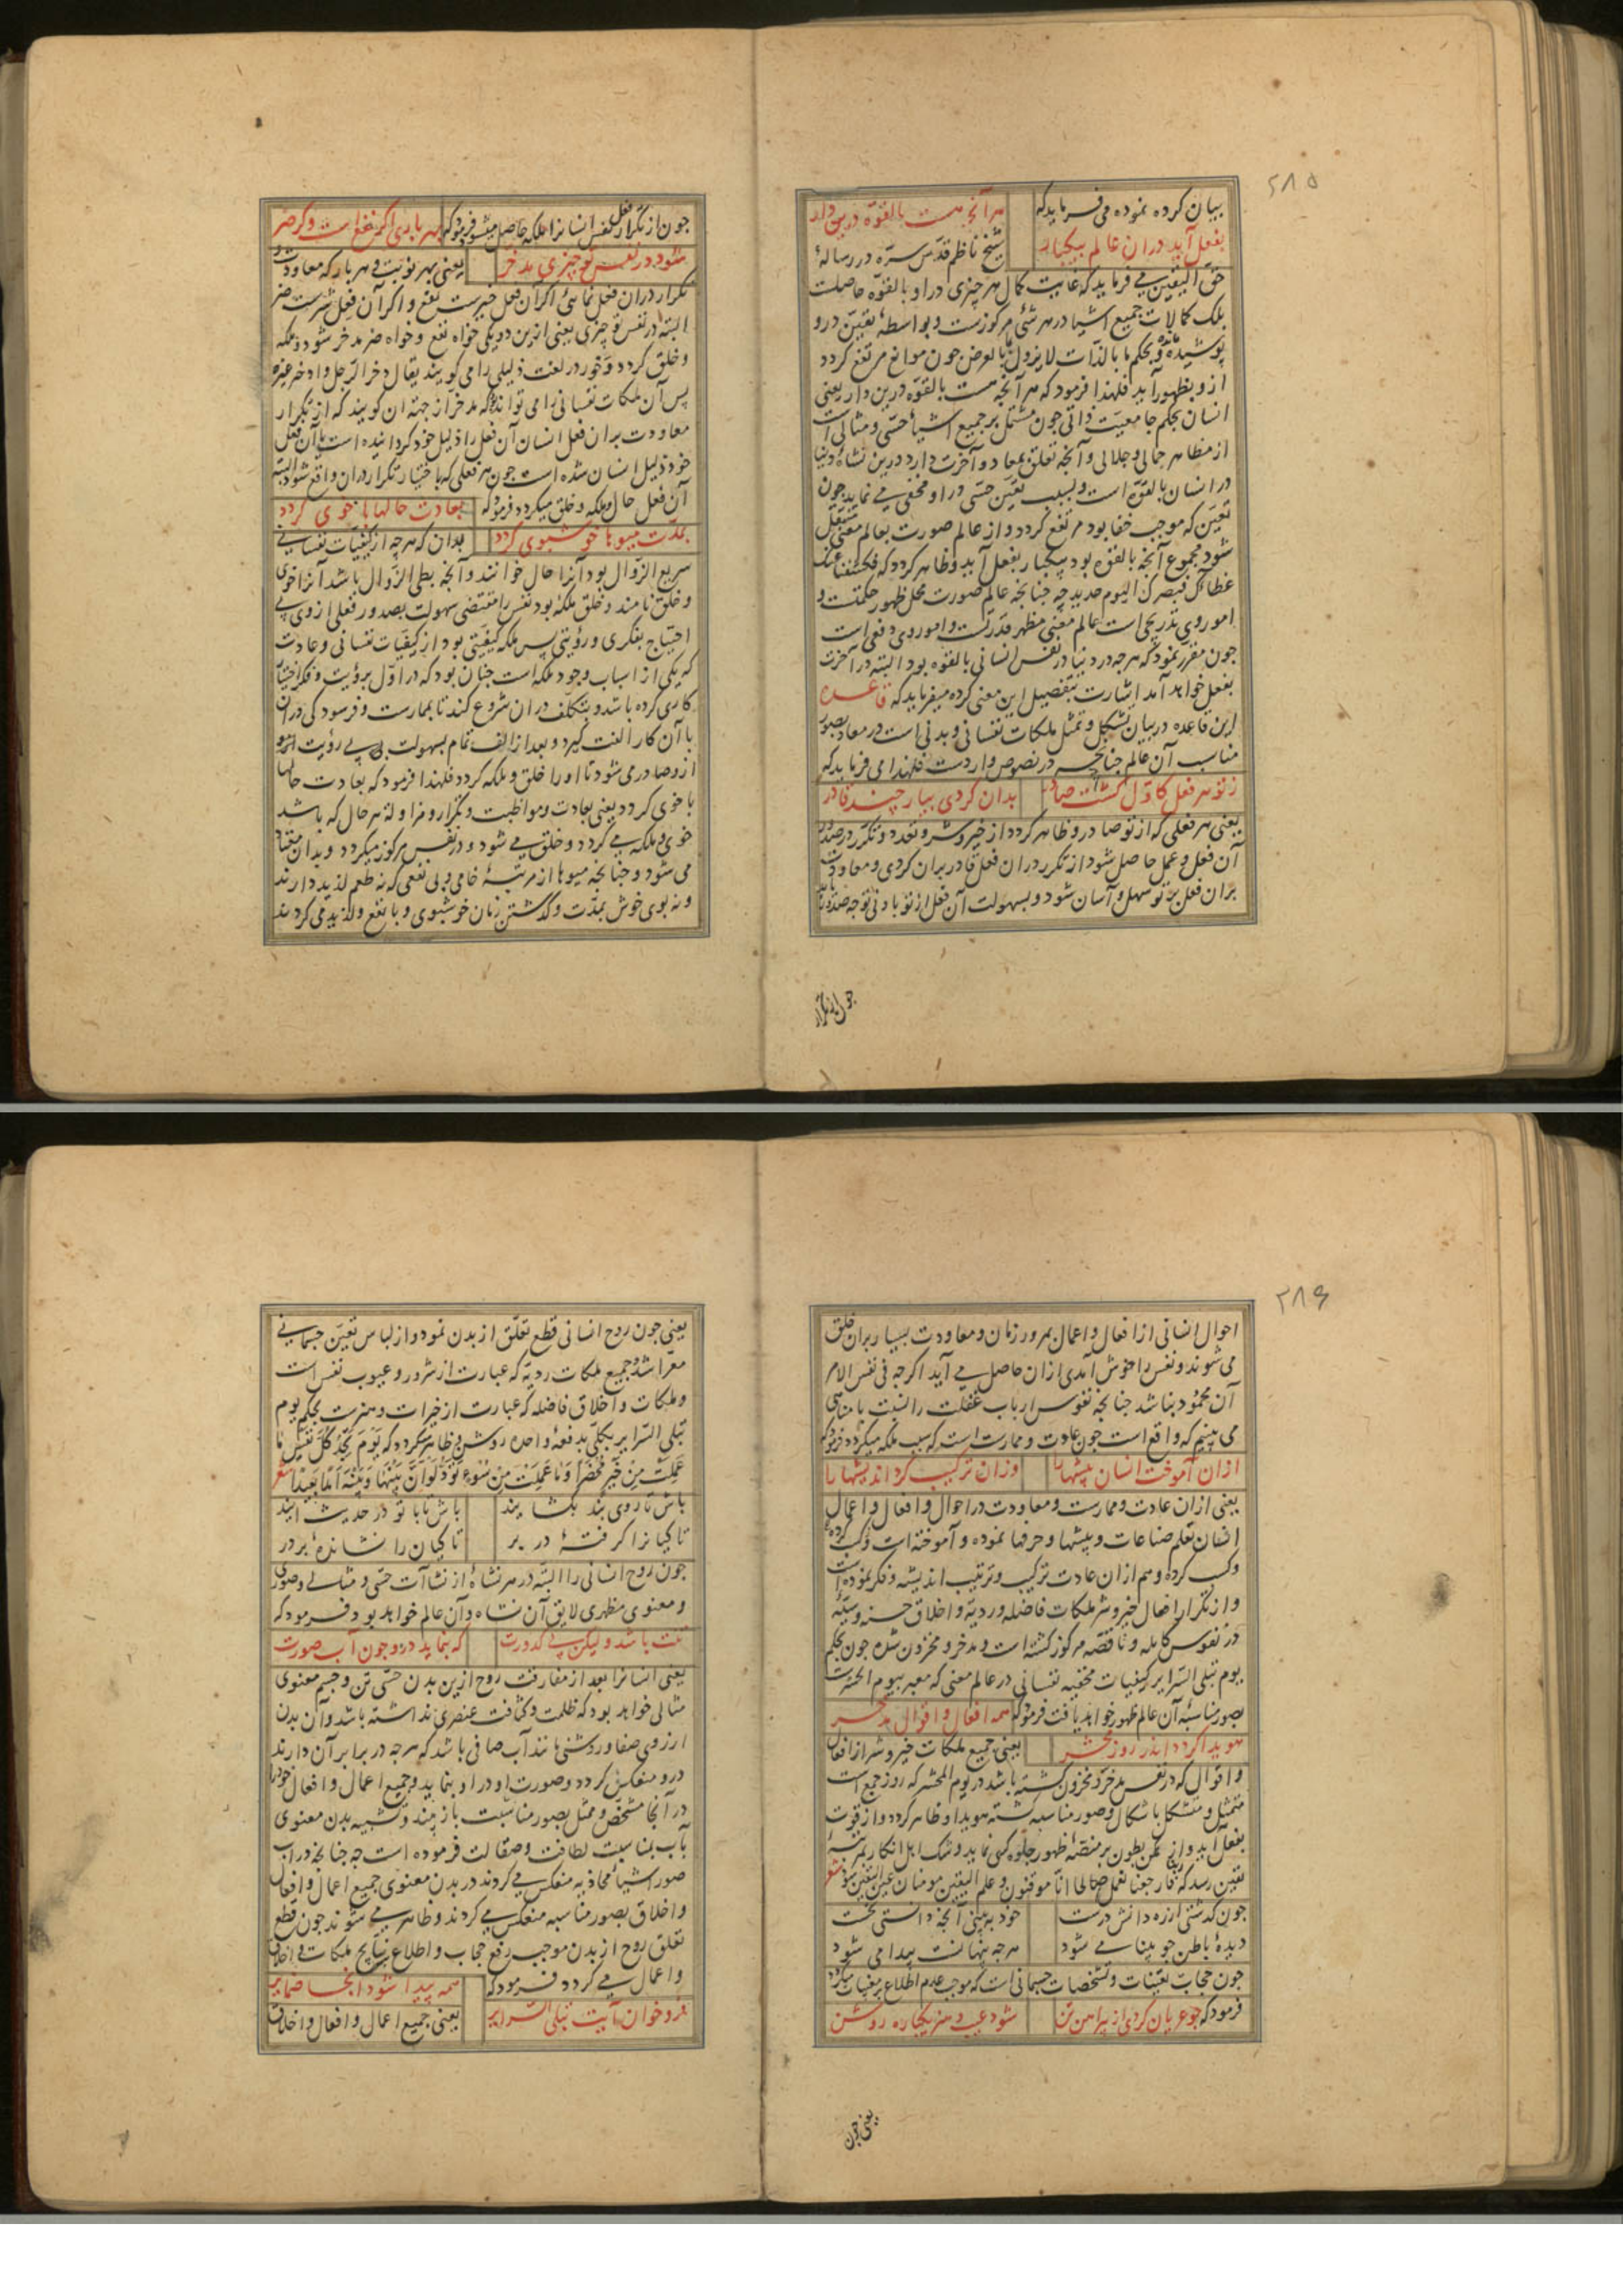 ۲۸۵
بیان کرده نموده می فرماید که هر آنچه هست بالقوه درین دار
بفعل آید در ان عالم بیکبار شیخ ناظم قدس سره در رساله
حق الیقین می فرماید که غایت کمال هر چیزی در او بالقوه حاصلست
بلک کمالات جمیع اشیا در هر شئی مرکوزست و بواسطه تعین درو
پوشیده و بحکم ما بالذات لایزول بالعرض جون موانع مرتفع کردد
ازو بظهور آید فلهذا فرمود که هر آنچه هست بالقوه درین دار یعنی
انسان بحکم جامعیت ذاتی جون مشتمل بر جمیع اشیاء حسی و مثالی است
از مظاهر جمالی و جلالی و آنچه تعلق بمعاد و آخرت دارد درین نشاه دنیا
در انسان بالقوه است و بسبب تعین حسی در او مخفی می نماید جون
تعین که موجب خفا بود مرتفع کردد و از عالم صورت بعالم معنی منتقل
شود مجموع آنچه بالقوه بود بیکبار بفعل آید و ظاهر کردد که فکشفنا عنک
غطاءک فبصرک الیوم حدید چه جنانچه عالم صورت محل ظهور حکمتست و
امور وی تدریجی است عالم معنی مظهر قدرتست و امور وی دفعی است
جون مقرر نمود که هر جه در دنیا در نفس انسانی بالقوه بود البته در آخرت
بفعل خواهد آمد اشارت بتفصیل این معنی کرده میفرماید که قاعده
این قاعده در بیان تشکل و تمثل ملکات نفسانی و بدنی است در معاد بصور
مناسب آن عالم جنانچه در نصوص واردست فلهذا می فرماید که
ز تو هر فعل کاول کشت صادر بدان کردی بباری چند قادر
یعنی هر فعلی که از تو صادر و ظاهر کردد از خیر و شر و تعدد و تکرر در صدور
آن فعل و عمل حاصل شود از تکرر در ان فعل قادر بران کردی و معاودت
بران فعل بر تو سهل و آسان شود و بسهولت آن فعل از تو بادنی توجه صدور یابد
جون از تکرار
جون از تکرار فعل نفس انسانرا ملکه حاصل میشود فرمود که بهر باری اکر نفع است و کر ضر
شود در نفس تو چیزی مدخر یعنی بهر نوبت و هر بار که معاودت و
تکرار دران فعل نمائی اکر آن فعل خیرست نفع و اکر آن فعل شرست ضر
البته در نفس تو چیزی یعنی ازین دو یکی خواه نفع و خواه ضر مدخر شود و ملکه
و خلق کردد و ذخور در لغت ذلیلی را می کویند یقال دخر الرجل و ادخره غیره
پس آن ملکات نفسانی را می تواند که مدخر از جهة ان کویند که از تکرار
معاودت بران فعل انسان آن فعل را ذلیل خود کردانیده است یا آن فعل
خود ذلیل انسان شده است جون هر فعلی که باختیار تکرار دران واقع شود البته
آن فعل حال و ملکه و خلق میکردد فرمود که بعادت حالها با خوی کردد
بمدت میوها خوشبوی کردد بدان که هر چه از کیفیات نفسانی
سریع الزوال بود آنرا حال خوانند و آنچه بطی الزوال باشد آنرا خوی
و خلق نامند و خلق ملکه بود نفس را مقتضی سهولت بصدور فعلی از وی بی
احتیاج بفکری و رویتی پس ملکه کیفیتی بود از کیفیات نفسانی و عادت
که یکی از اسباب وجود ملکه است جنان بود که در اول برویت و فکر اختیار
کاری کرده باشد و بتکلف دران شروع کند تا بممارست و فرسودکی دران
با آن کار الفت کیرد و بعد از الف تمام بسهولت بی رویت ازو
ازو صادر می شود تا او را خلق و ملکه کردد فلهذا فرمود که بعادت حالها
با خوی کردد یعنی بعادت و مواظبت و تکرار و مزاولة هر حال که باشد
خوی و ملکه می کردد و خلق می شود و در نفس مرکوز میکردد و بدان معتاد
می شود و جنانچه میوها از مرتبه خامی و بی نفعی که نه طعم لذید دارند
و نه بوی خوش بمدت و کذشتن زمان خوشبوی و با نفع و لذید می کردند
۲۸۶
احوال انسانی از افعال و اعمال بمرور زمان و معاودت بسیار بران خلق
می شوند و نفس را خوش آمدی ازان حاصل می آید اکرچه فی نفس الامر
آن محمود نباشد جنانچه نفوس ارباب غفلت را نسبت با مناهی
می بینیم که واقع است جون عادت و ممارست است که سبب ملکه میکردد فرمود که
ازان آموخت انسان پیشها را وزان ترکیب کرد اندیشها را
یعنی ازان عادت و ممارست و معاودت در احوال و افعال و اعمال
انسان تعلم صناعات و پیشها و حرفها نموده و آموخته است و کسب کرده
وکسب کرده و هم ازان عادت ترکیب و ترتیب اندیشه و فکر نموده است
و از تکرار افعال خیر و شر ملکات فاضله و ردیه و اخلاق حسنه و سیئه
در نفوس کامله و ناقصه مرکوز کشته است و مدخر و مخزون شده جون بحکم
یوم تبلی السرایر کیفیات مخفیه نفسانی در عالم معنی که معبر بیوم الحشرست
بصور مناسبه آن عالم ظهور خواهد یافت فرمود که همه افعال و اقوال مدخر
هویدا کردد اندر روز محشر یعنی جمیع ملکات خیر و شر از افعال
و اقوال که در نفس مدخر و مخزون کشته باشد در یوم المحشر که روز جمع است
متمثل و متشکل باشکال و صور مناسبه کشته هویدا و ظاهر کردد و از قوت
بفعل آید و از مکمن بطون بر منصه ظهور جلوه کری نماید و شک اهل انکار بمرتبه
یقین رسد که فارجعنا نعمل صالحا انا موقنون و علم الیقین مومنان عین الیقین شود شعر
جون کذشتی از ره دانش درست خود ببینی آنچه دانستی نخست
دیده باطن جو بینا می شود هرچه پنهانست پیدا می شود
جون حجاب تعینات و تشخصات جسمانی است که موجب عدم اطلاع بر مغیبات میکردد
فرمود که جو عریان کردی از پیراهن تن شود عیب و هنر یکباره روشن
یعنی جون
یعنی جون روح انسانی قطع تعلق از بدن نمود و از لباس تعین جسمانی
معرا شد و جمیع ملکات ردیه که عبارت از شرور و عیوب نفس است
و ملکات و اخلاق فاضله که عبارت از خیرات و هنرست بحکم یوم
تبلی السرایر بکلی بدفعه واحده روشن و ظاهر میکردد که یَوْمَ تَجِدُ کُلُّ نَفْسٍ مَا
عَمِلَتْ مِنْ خَیْرٍ مُحْضَرًا وَمَا عَمِلَتْ مِنْ سُوءٍ تَوَدُّ لَوْ اَنَّ بَیْنَهَا وَبَیْنَهُ اَمَدًا بَعِیدًا شعر
باش تا روی بند بکشایند باش تا با تو در حدیث آیند
تا کیانرا کرفتهٔ در بر تا کیان را نشاندهٔ بر در
جون روح انسانی را البته در هر نشاه از نشاآت حسی و مثالی و صوری
و معنوی مظهری لایق آن نشاه و آن عالم خواهد بود فرمود که
تنت باشد ولیکن بی کدورت که بنماید درو جون آب صورت
یعنی انسانرا بعد از مفارقت روح ازین بدن حسی تن و جسم معنوی
مثالی خواهد بود که ظلمت و کثافت عنصری نداشته باشد و آن بدن
از روی صفا و روشنی مانند آب صافی باشد که هرچه در برابر آن دارند
درو منعکس کردد و صورت او در او بنماید و جمیع اعمال و افعال خود را
در آنجا مشخص و ممثل بصور مناسبت باز بیند و تشبیه بدن معنوی
بآب بمناسبت لطافت و صقالت فرموده است چه جنانچه در اب
صور اشیاء محاذیه منعکس می کردند در بدن معنوی جمیع اعمال و افعال
و اخلاق بصور مناسبه منعکس می کردند و ظاهر می شوند جون قطع
تعلق روح از بدن موجب رفع حجاب و اطلاع نتایج ملکات و اخلاق
و اعمال می کردد فرمود که همه پیدا شود آنجا ضمایر
فرو خوان آیت تبلی السرایر یعنی جمیع اعمال و افعال و اخلاق